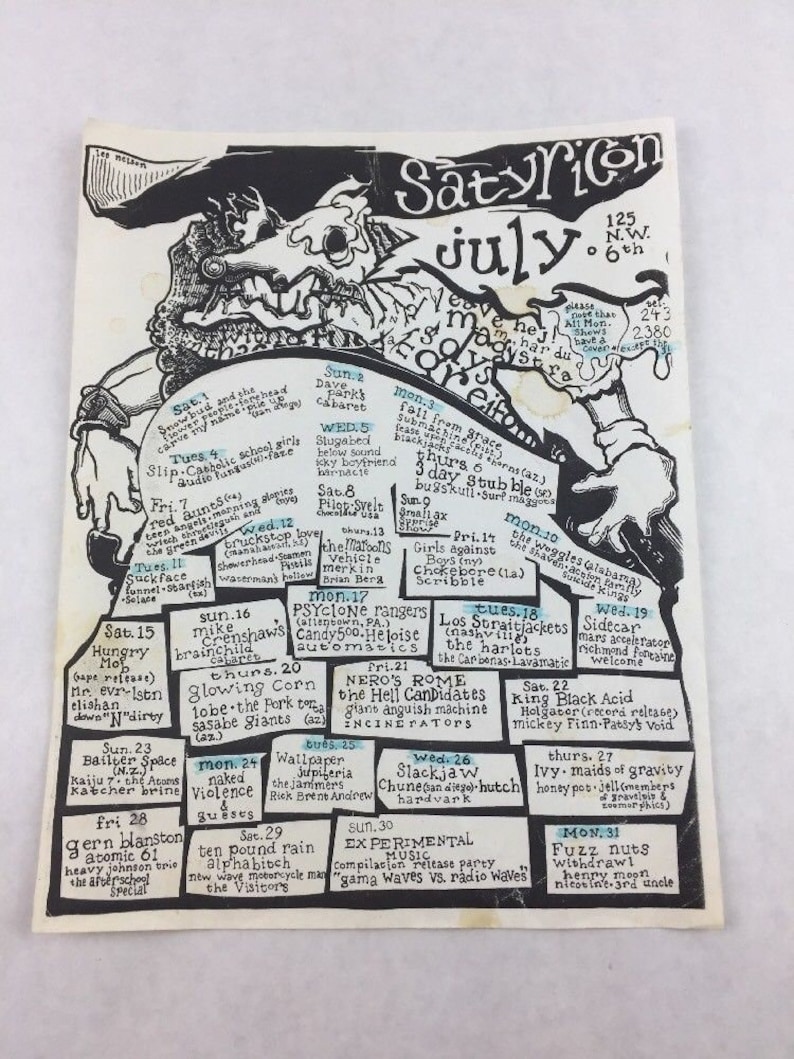 lee nelson
Satyricon
july
125
N.W.
6th
tel.
243
2380
please
note that
All Mon.
Shows
have a
Cover
except the
31
Sat. 1
Snowbud and the
flower people · forehead
carve my name · pile up
(san diego)
Sun. 2
Dave
park's
Cabaret
mon. 3
fall from grace
Submachine (pitt.)
feast upon cactus thorns (az.)
blackjacks
Tues. 4
Slip · Catholic school girls
audio fungus · faze
WED. 5
Slugabed
below sound
icky boyfriend
barnacle
thurs. 6
3 day stubble (SF.)
bugskull · surf maggots
Fri. 7
red aunts (ca)
teen angels · morning glories
(nyc)
witch throttlegush and
the green devil
Sat. 8
Pilot · Svelt
Chocolate usa
Sun. 9
Small ax
Mon. 10
the Woggles (alabama)
the shaven · action family
suicide kings
Tues. 11
Suckface
funnel · Starfish
· Solace (tx)
Wed. 12
truckstop love
(manahattan, ks)
showerhead · Stamen
Pistils
waterman's hollow
thurs. 13
the maroons
Vehicle
merkin
Brian Berg
Fri. 14
Girls against
Boys (ny)
Chokebore (l.a.)
Scribble
Sat. 15
Hungry
Mob
(tape release)
Mr. evr-lstn
elishan
down "N" dirty
sun. 16
mike
Crenshaw's
brainchild
cabaret
mon. 17
PSYcloNe rangers
(allentown, PA.)
Candy 500 · Heloise
automatics
tues. 18
Los Straitjackets
(nashville)
the harlots
the Carbonas · Lavamatic
Wed. 19
Sidecar
mars accelerator
richmond fontaine
welcome
thurs. 20
glowing Corn
lobe · the Pork torta
sasabe giants (az)
(az.)
fri. 21
NERO'S ROME
the Hell CanDidates
giant anguish machine
INCINERATORS
Sat. 22
King Black Acid
Holgator (record release)
mickey Finn · Patsy's Void
Sun. 23
Bailter Space
(N.Z.)
Kaiju 7 · the Atoms
Katcher brine
mon. 24
naked
Violence
&
guests
tues. 25
Wallpaper
jupiteria
the jammers
Rick Brent Andrew
Wed. 26
Slackjaw
Chune (san diego) · hutch
hardvark
thurs. 27
Ivy · maids of gravity
honey pot · jell (members
of gravelpit &
zoomorphics)
fri 28
gern blanston
atomic 61
heavy johnson trio
the afterschool
Special
Sat. 29
ten pound rain
alphabitch
new wave motorcycle man
the Visitors
sun. 30
EXPERIMENTAL
MUSIC
compilation release party
"gama Waves vs. radio Waves"
MON. 31
Fuzz nuts
withdrawl
henry moon
nicotine · 3rd uncle